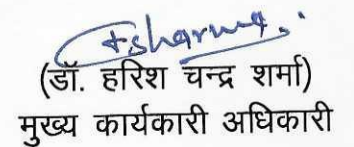 (डॉ. हरिश चन्द्र शर्मा)
मुख्य कार्यकारी अधिकारी